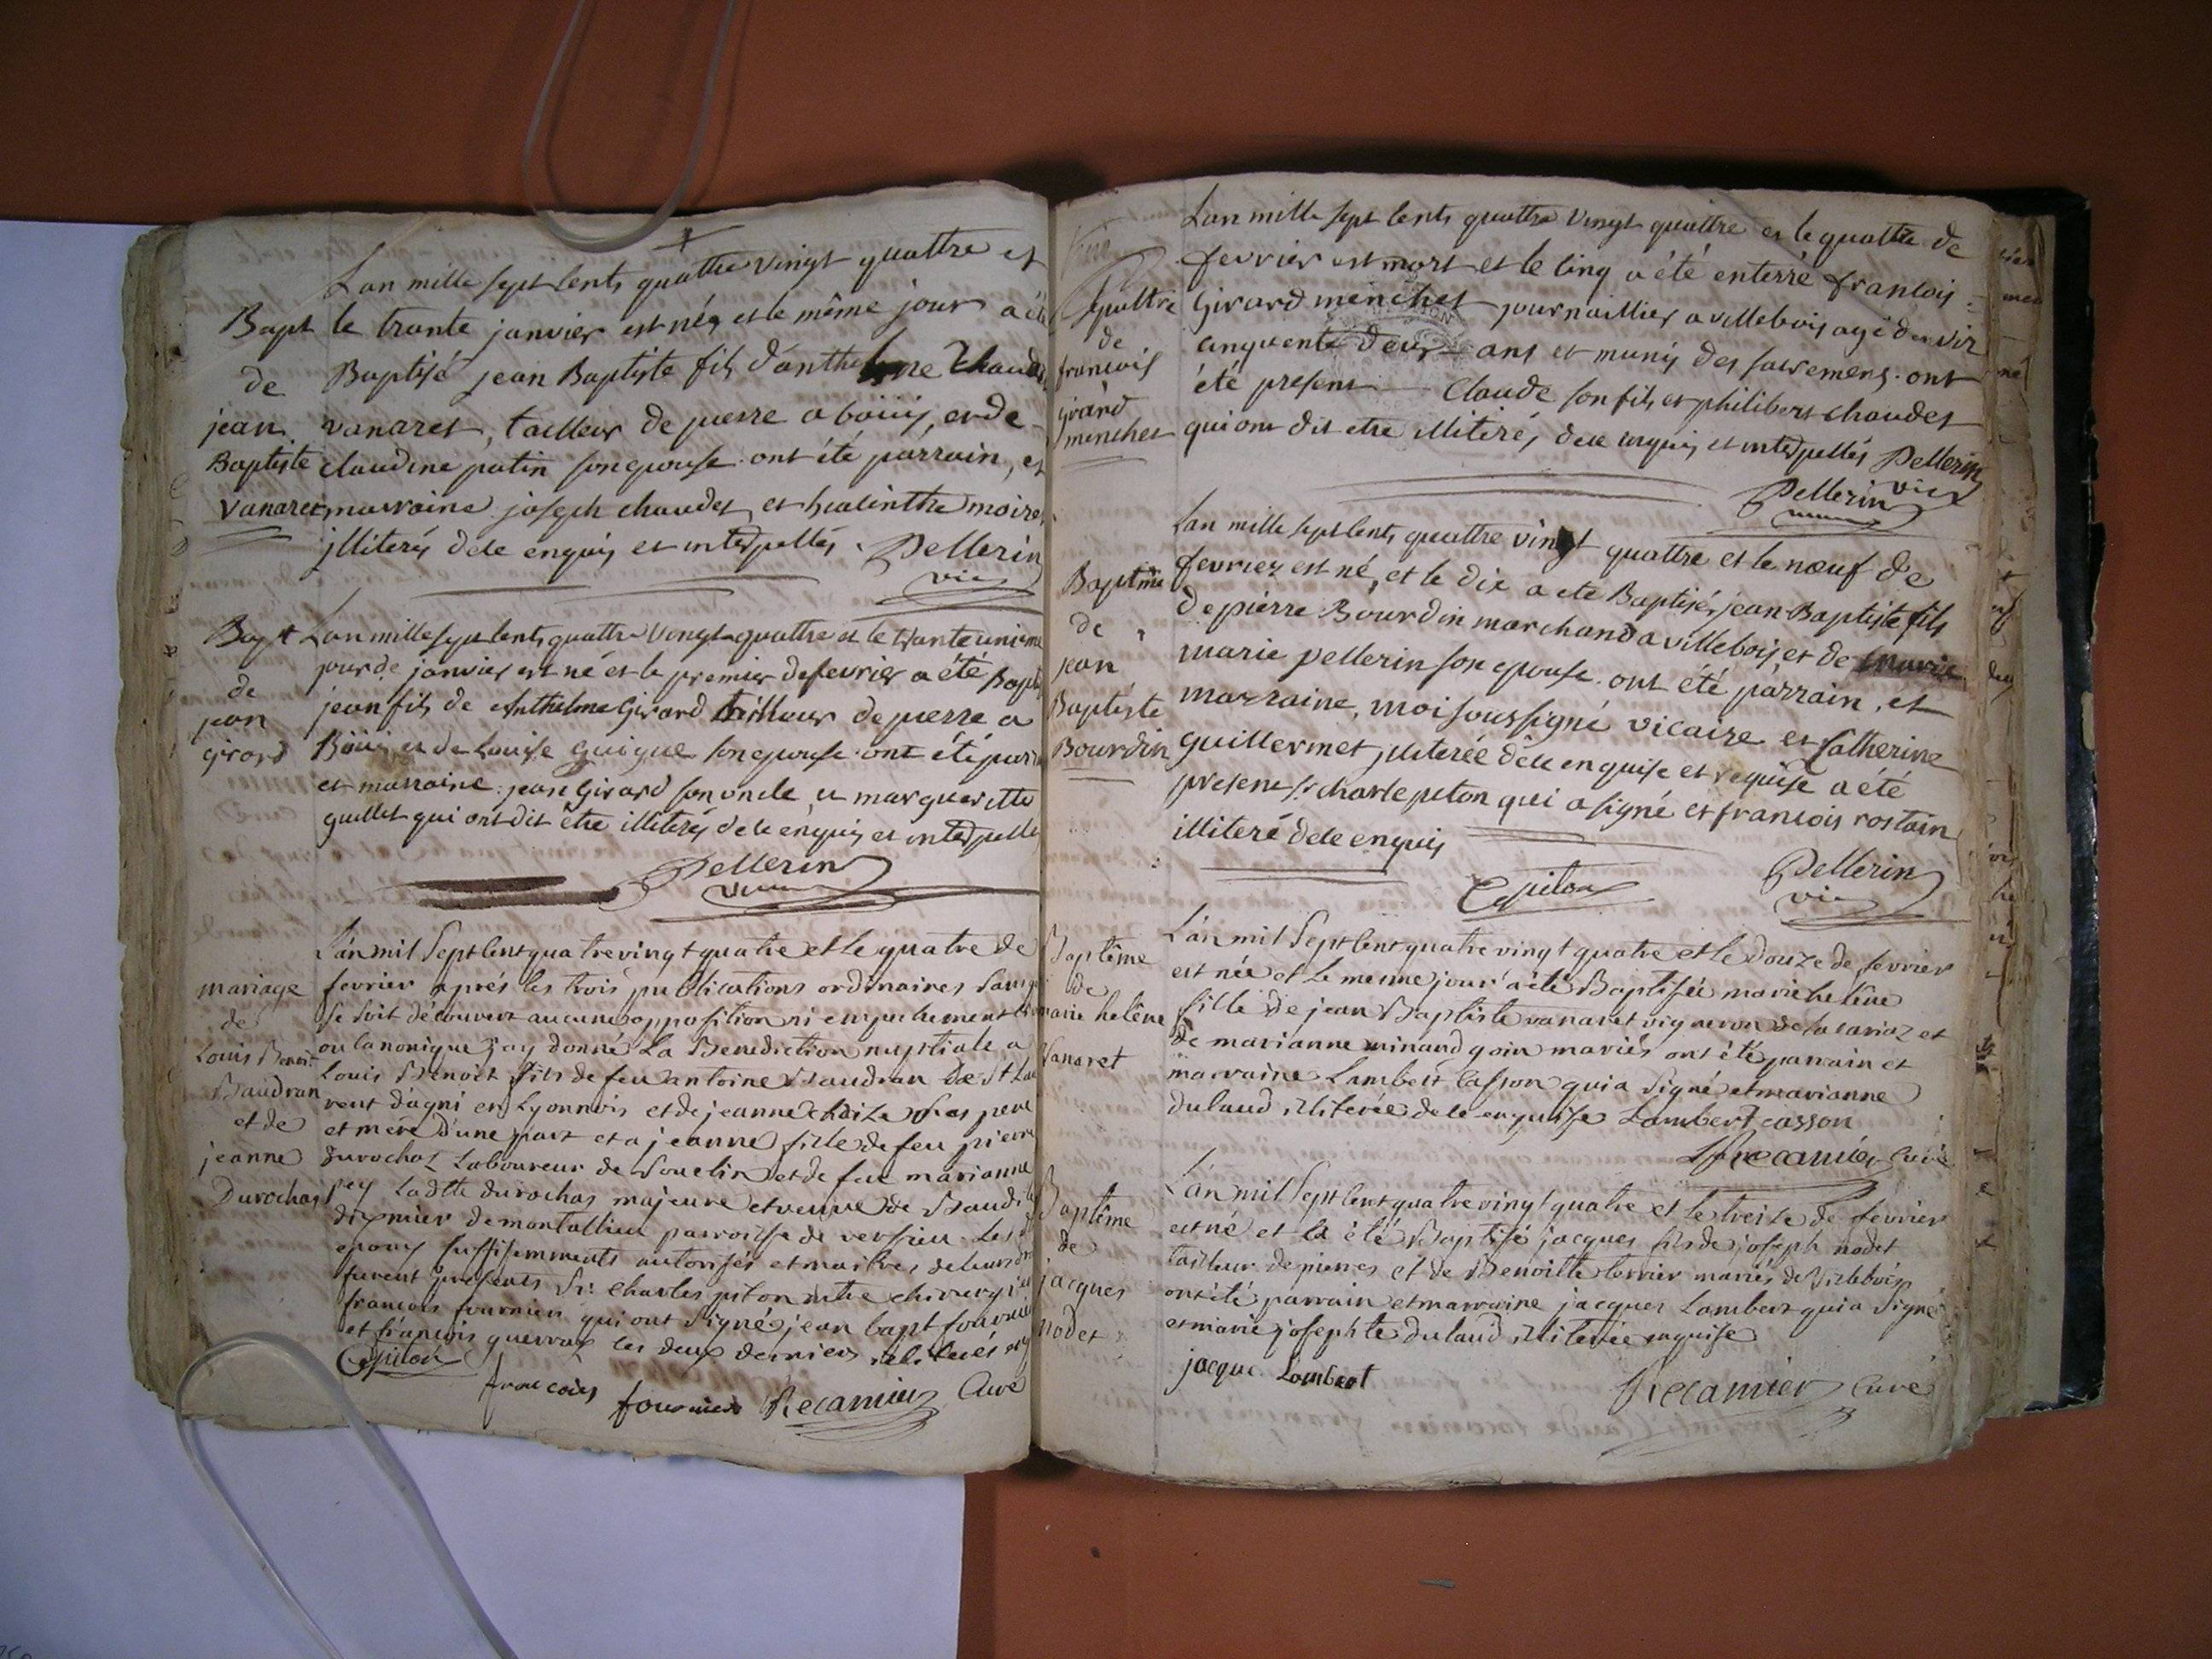 Lan mille sept cents quattre vingt quattre et
Bapt le trante janvier est né, et le même jour a été
de Baptisé jean Baptiste fils d'anthelme Chaudet
jean vanaret, tailleur de pierre a bouis, et de
Baptiste claudine patin son epouse ont été parrain, et
vanaret marraine joseph chaudet, et hiacinthe moiret
illiterés de ce enquis et interpellés. Pellerin
vic
Bapt Lan mille sept cents quattre vingt quattre et le trante unieme
jour de janvier est né et le premier de fevrier a été Bapt
de jean fils de Anthelme Girard tailleur de pierre a
jean Bouis et de Louise guigue son epouse ont été parr
girard et marraine jean Girard son oncle et margueritte
guillet qui ont dit être illiterés de ce enquis et interpellé
Pellerin
vic
L'an mil sept cent quatre vingt quatre et le quatre de
mariage fevrier après les trois publications ordinaires sans
de se soit découvert aucune opposition ni empechement
Louis Benoit ou canonique j'ay donné La Benediction nuptiale a
Baudran Louis Benoit fils de feu antoine Baudran De St Lau
et de rent dagni en Lyonnois et de jeanne chaize ses pere
jeanne et mere d'une part et a jeanne fille de feu pierre
Durochas durochat Laboureur de Souclin et de feue marianne
pey Ladtte durochas majeure et veuve de
de montallieu parroisse de versieu Les
epoux suffisemments autorisés et maitres de leurs
furent presents Sr. Charles piton mtre chirurgi
francois fournier qui ont signé, jean bapt fournier
et francois guerras les deux derniers illiterés enq
C piton
francois fournier Recamier Curé
Lan mille sept cents quattre vingt quattre et le quattre de
fevrier est mort et le cinq a été enterré francois
Sepulttre Girard menchet journaillier a villebois agé d'environ
de cinquente deux ans et munis des sacremens. ont
francois été present Claude son fils, et philibert chaudet
girard qui ont dit etre illiterés de ce enquis, et interpellés Pellerin
menchet vic
Pellerin
Lan mille sept cents quattre vingt quattre et le neuf de
Baptme fevrier est né, et le dix a ete Baptisé, jean Baptiste fils
de de pierre Bourdin marchand a villebois, et de marie
jean marie pellerin son epouse. ont été parrain, et
Baptiste marraine, moi soussigné vicaire et Catherine
Bourdin guillermet, illiterée de ce enquise et requise a été
present sr charle piton qui a signé et francois rostain
illiteré de ce enquis
C piton Pellerin
vic
L'an mil sept cent quatre vingt quatre et le douze de fevrier
Baptême est née et le meme jour a été Baptisée marie helêne
de
marie helêne fille de jean Baptiste vanaret vigneron de la cariaz et
Vanaret de marianne minand goin mariés ont été parrain et
marraine Lambert Casson qui a signé et marianne
dulaud illiterée de ce enquise Lambert casson
Recamier Curé
L'an mil sept cent quatre vingt quatre et le treize de fevrier
Baptême est né et a été Baptisé jacques fils de joseph nodet
de tailleur de pierres et de Benoitte terrier mariés de Villebois
jacques ont été parrain et marraine jacques Lambert qui a signé
nodet et marie josephte dulaud illiterée enquise
jacque Lambert
Recamier Curé